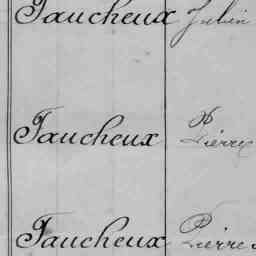 Faucheux Julien
Faucheux Pierre
Faucheux Pierre